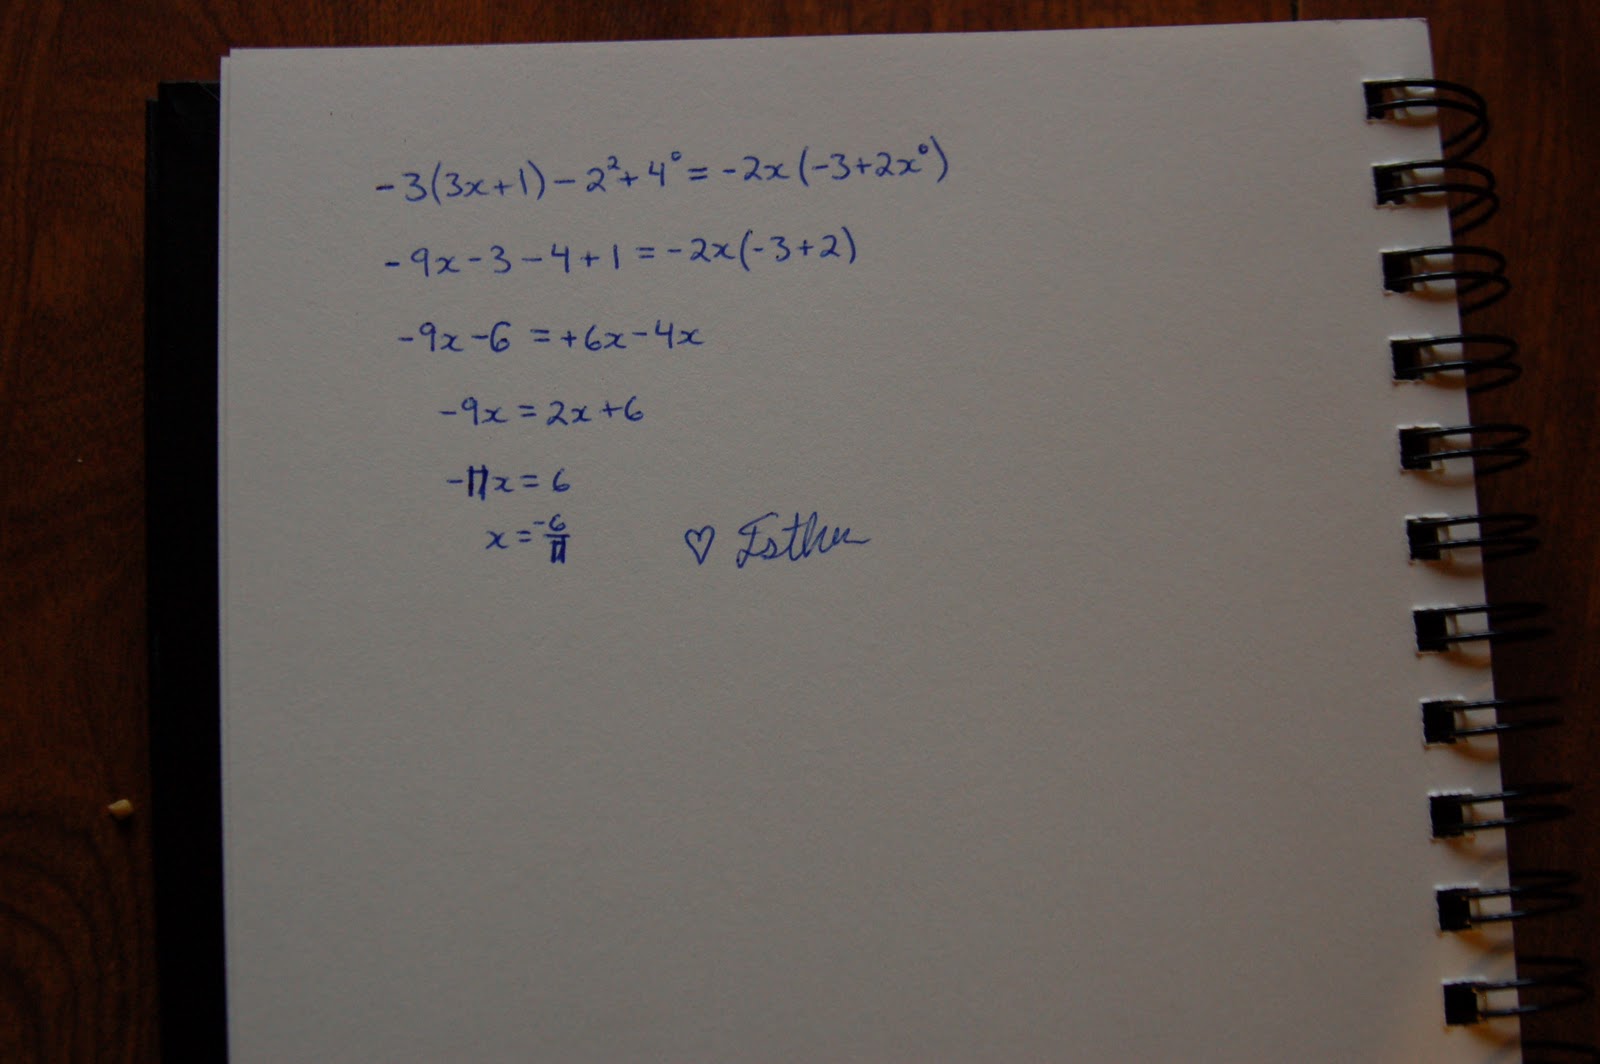 -3(3x+1)-2²+4⁰=-2x(-3+2x⁰)
-9x-3-4+1=-2x(-3+2)
-9x-6=+6x-4x
-9x=2x+6
-11x=6
x=-6/11
♡ Esther